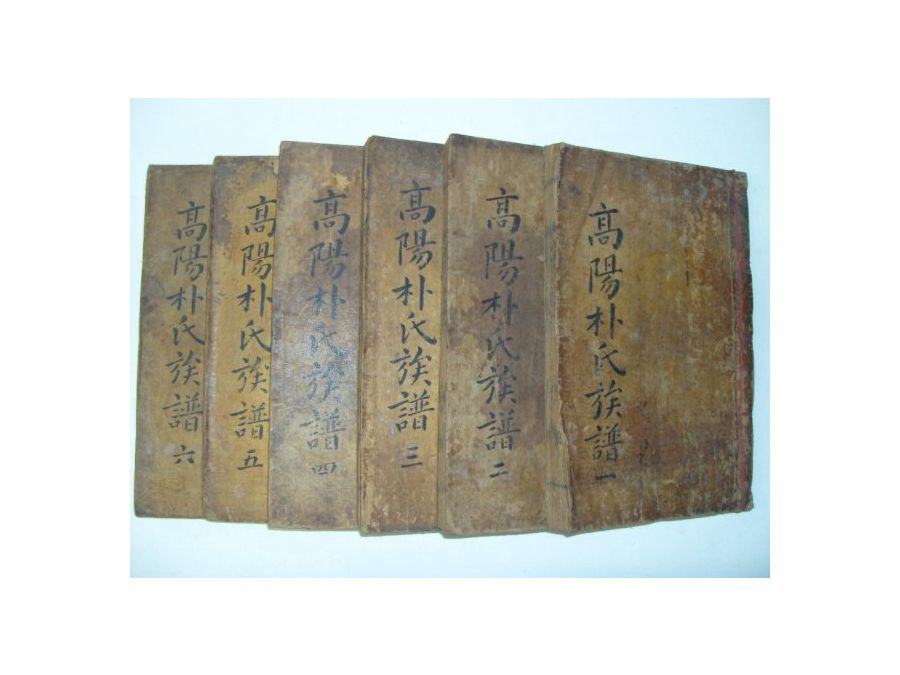 高陽朴氏族譜 一
高陽朴氏族譜 二
高陽朴氏族譜 三
高陽朴氏族譜 四
高陽朴氏族譜 五
高陽朴氏族譜 六